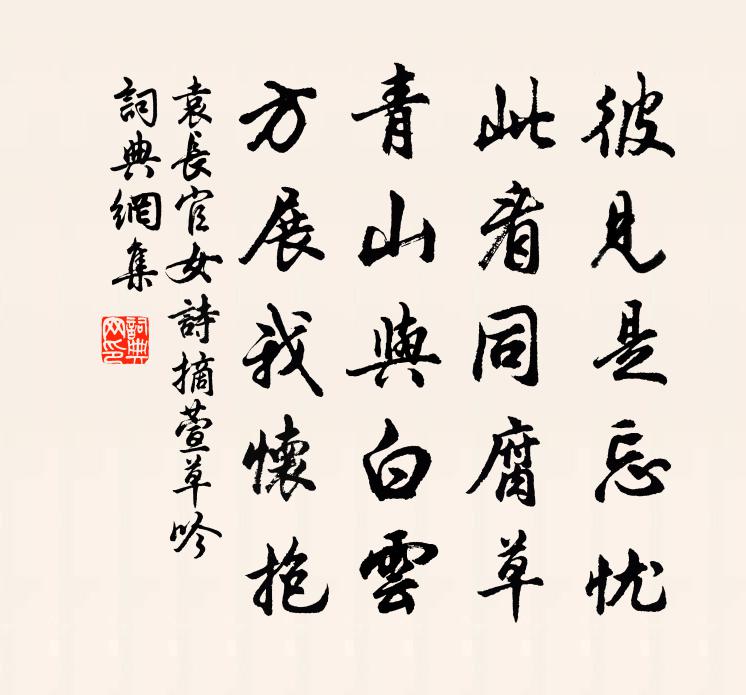 彼見是忘忧
此看同腐草
青山與白雲
方展我懷抱
袁長官女詩摘萱草吟
詞典網集
詞典网印